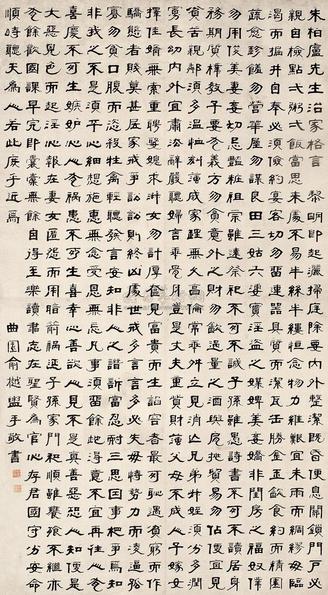 朱柏廬先生治家格言 黎明即起灑掃庭除要內外整潔既昏便息關鎖門戶必
親自檢點一粥一飯當思來處不易半絲半縷恆念物力維艱宜未雨而綢繆毋臨
渴而掘井自奉必須儉約宴客切勿留連器具質而潔瓦缶勝金玉飲食約而精園
蔬愈珍饈勿營華屋勿謀良田三姑六婆實淫盜之媒婢美妾嬌非閨房之福奴僕
勿用俊美妻妾切忌豔粧祖宗雖遠祭祀不可不誠子孫雖愚詩書不可不讀居身
務期質樸教子要有義方勿貪意外之財勿飲過量之酒與肩挑貿易勿佔便宜見
貧苦親鄰須多溫恤刻薄成家理無久享倫常乖舛立見消亡兄弟叔姪須分多潤
寡長幼內外宜肅法辭嚴聽婦言乖骨肉豈是丈夫重貲財薄父母不成人子嫁女
擇佳婿無索重聘娶媳求淑女勿計厚奩見富貴而生諂容者最可恥遇貧窮而作
驕態者賤莫甚居家戒爭訟訟則終凶處世戒多言言多必失毋恃勢力而凌逼孤
寡勿貪口腹而恣殺牲輕聽發言安知非人之譖訴當忍耐三思因事相爭焉知
非我之不是須平心細想施惠無念受恩莫忘凡事當留餘地得意不宜再往人有
喜慶不可生嫉妒心人有禍患不可生喜幸心善欲人見不是真善惡恐人知便是
大惡見色而起淫心報在妻女匿怨而用暗箭禍延子孫家門和順雖饔飧不繼亦
有餘歡國課早完即囊橐無餘自得至樂讀書志在聖賢為官心存君國守分安命
順時聽天為人若此庶乎近焉
曲園俞樾盥手敬書